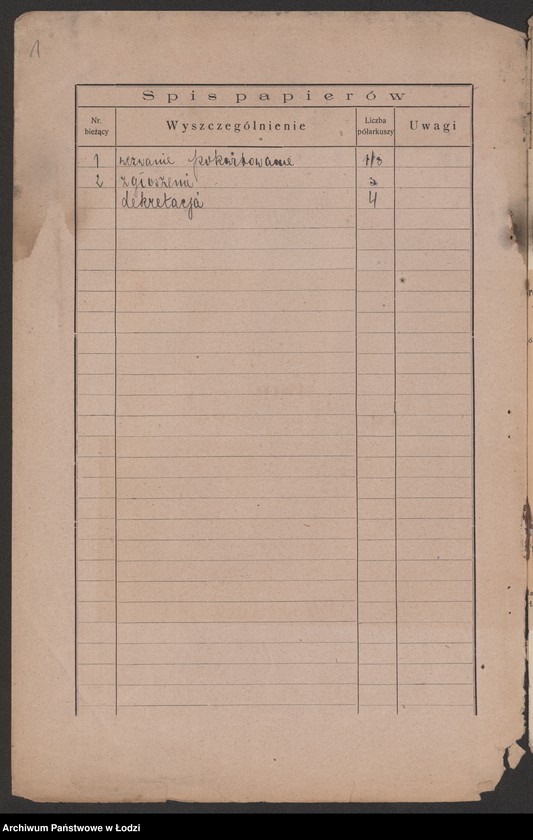 1
Spis papierów
Nr. bieżący Wyszczególnienie Liczba półarkuszy Uwagi
1 wezwanie pokwitowanie
2 zgłoszenie 2
dekretacja 4
Archiwum Państwowe w Łodzi